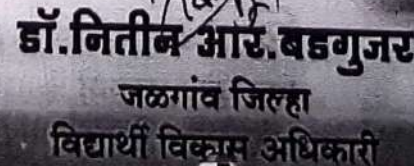 डॉ.नितीन आर.बडगुजर
जळगांव जिल्हा
विद्यार्थी विकास अधिकारी